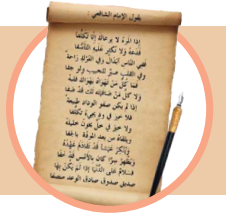 يقول الإمام الشافعي :
إذا المرء لا يرعاك إلا تكلفا
فدعه ولا تكثر عليه التأسفا
ففي الناس أبدال وفي الترك راحة
وفي القلب صبر للحبيب ولو جفا
فما كل من تهواه يهواك قلبه
ولا كل من صافيته لك قد صفا
إذا لم يكن صفو الوداد طبيعة
فلا خير في ود يجيء تكلفا
ولا خير في خل يخون خليله
ويلقاه من بعد المودة بالجفا
وينكر عيشا قد تقادم عهده
ويظهر سرا كان بالأمس قد خفا
سلام على الدنيا إذا لم يكن بها
صديق صدوق صادق الوعد منصفا